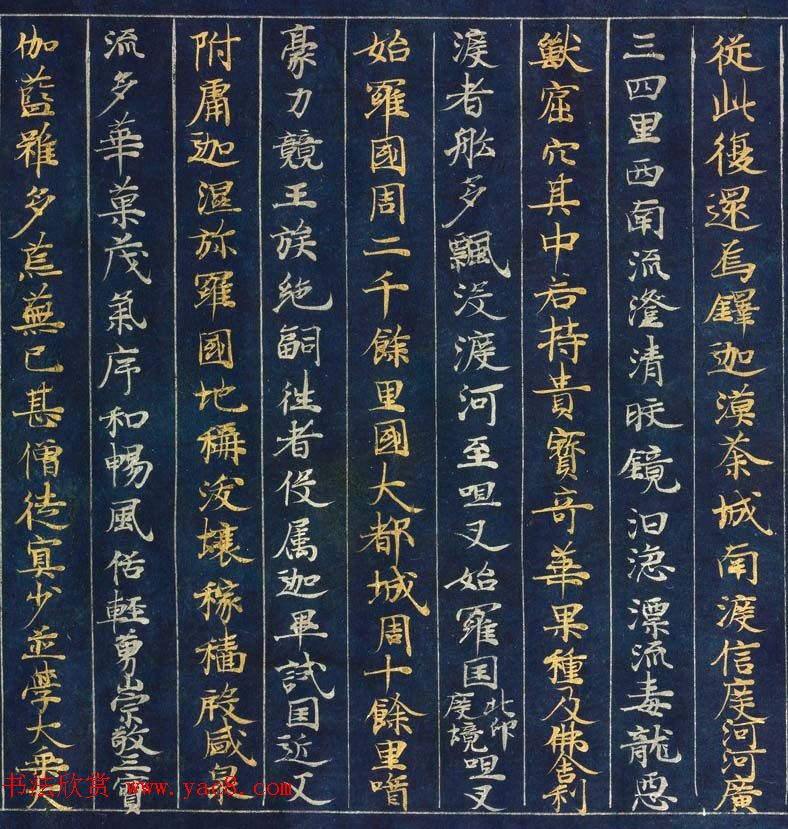 從此復還烏鐸迦漢荼城南渡信度河河廣
三四里西南流澄清皎鏡汩㴔漂流毒龍惡
獸窟穴其中若持貴寶奇華果種及佛舍利
渡者舩多飄沒渡河至呾叉始羅国北印度境呾叉
始羅國周二千餘里國大都城周十餘里酋
豪力競王族絕嗣往者役属迦畢試国近又
附庸迦濕弥羅國地稱沃壤稼穡殷盛泉
流多華菓茂氣序和暢風俗輕勇崇敬三寶
伽藍雖多荒蕪已甚僧徒寡少並學大乘
书法欣赏 www.yac8.com